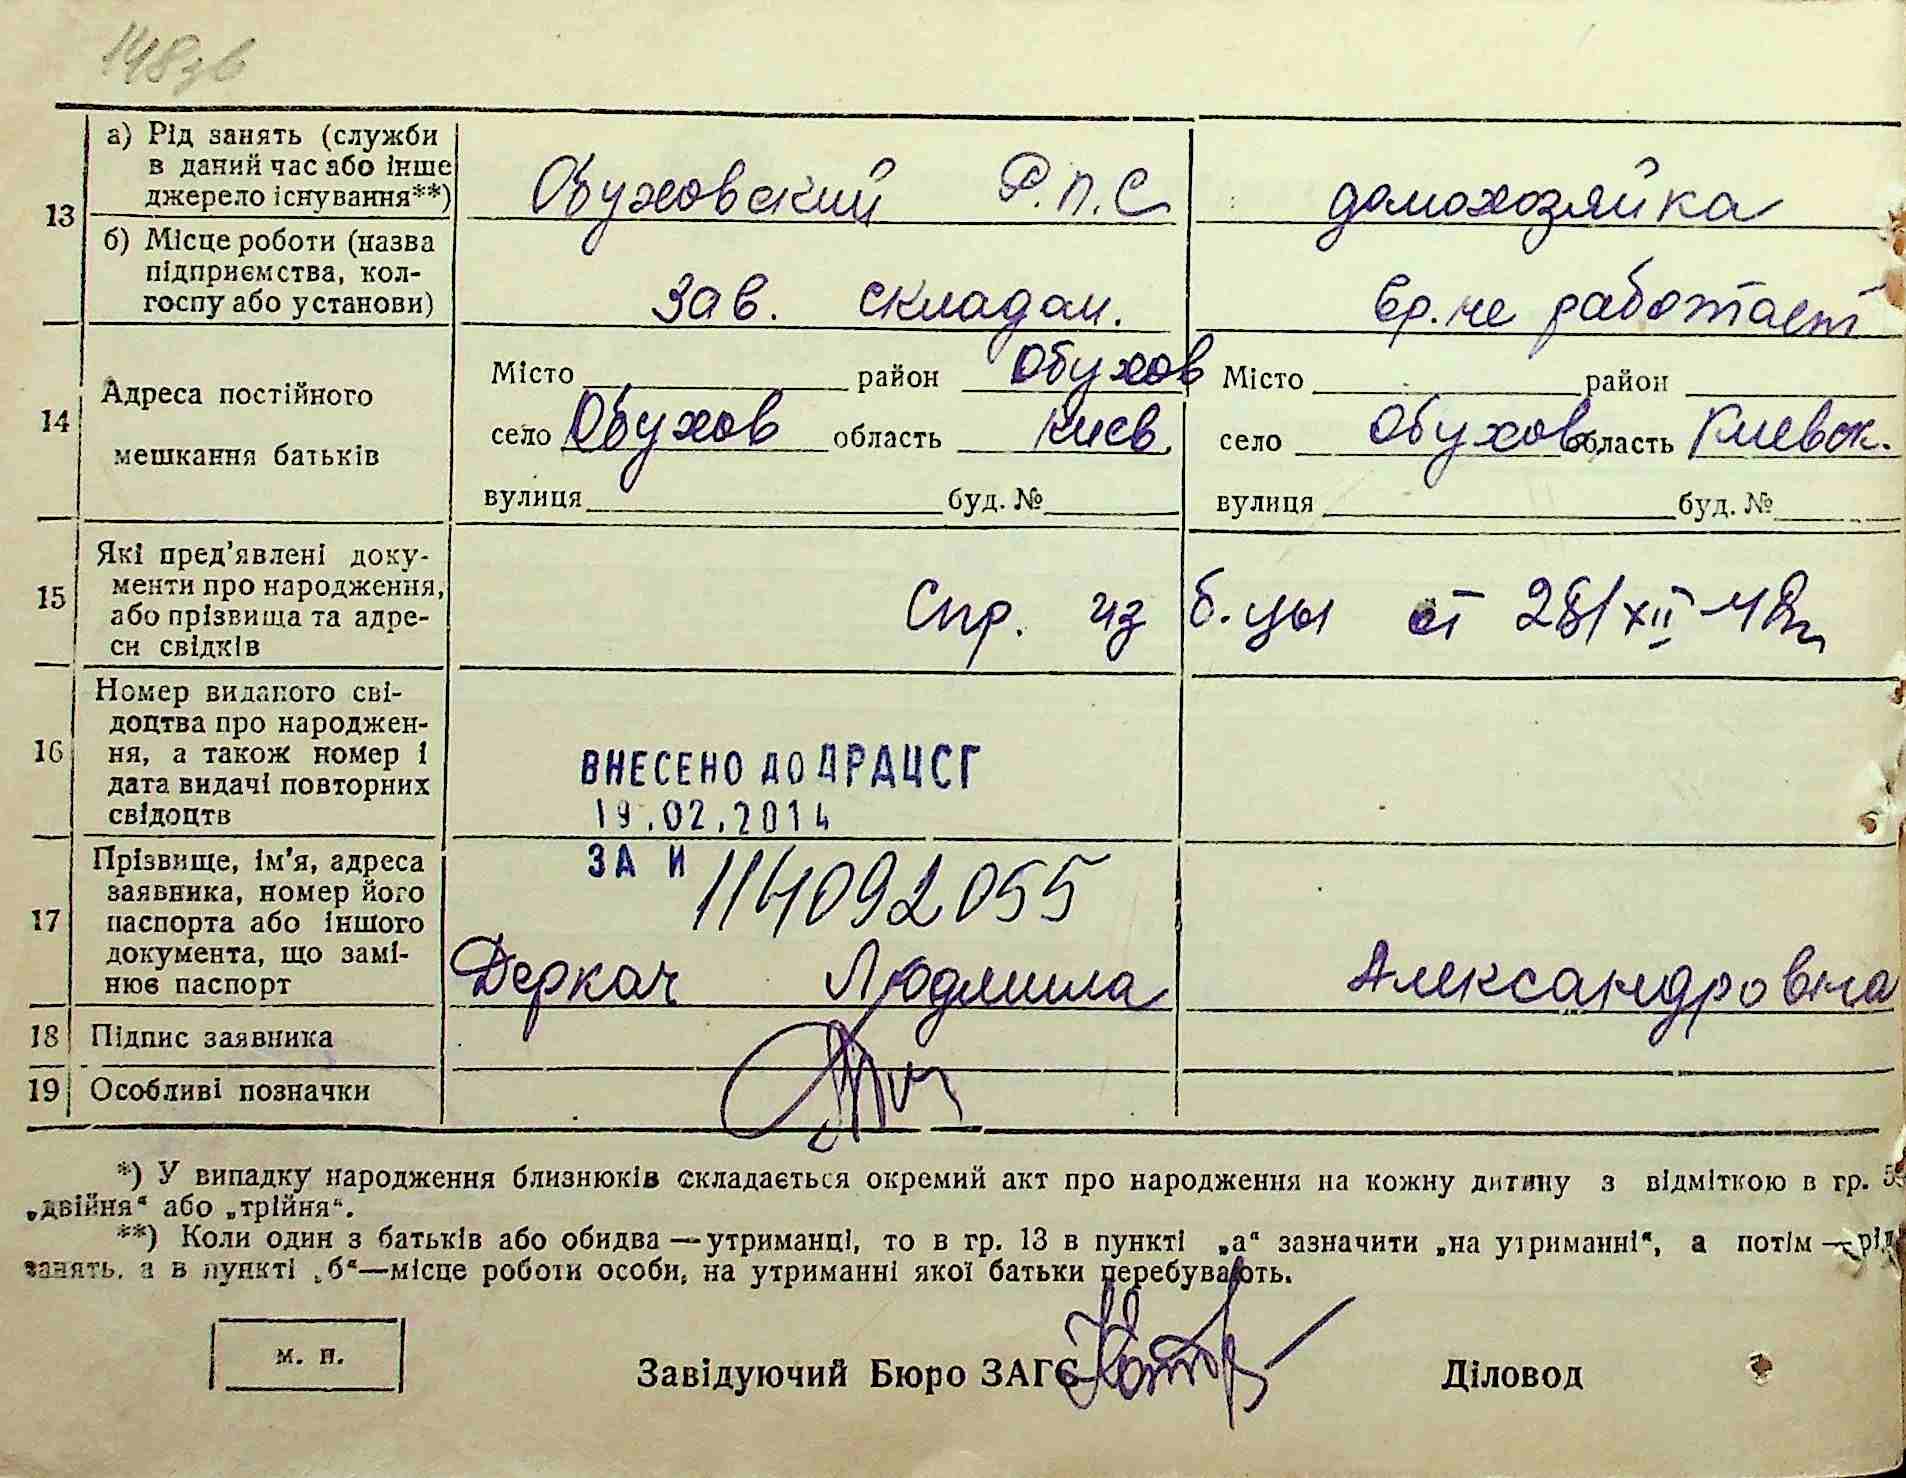 148зв
13
а) Рід занять (служби
в даний час або інше
джерело існування**)
Обуховский Р.П.С
домохозяйка
б) Місце роботи (назва
підприємства, кол-
госпу або установи)
Зав. складом.
вр. не работает
14
Адреса постійного
мешкання батьків
Місто район Обухов
село Обухов область Киев.
вулиця буд. №
Місто район
село Обухов область Киевск.
вулиця буд. №
15
Які пред'явлені доку-
менти про народження,
або прізвища та адре-
си свідків
Спр. из б.цы от XII
16
Номер виданого сві-
доцтва про народжен-
ня, а також номер і
дата видачі повторних
свідоцтв
ВНЕСЕНО ДО ДРАЦСГ
19.02.2014
ЗА И 114092055
17
Прізвище, ім'я, адреса
заявника, номер його
паспорта або іншого
документа, що замі-
нює паспорт
Деркач Людмила Александровна
18 Підпис заявника
19 Особливі позначки
*) У випадку народження близнюків складається окремий акт про народження на кожну дитину з відміткою в гр. 5
„двійня“ або „трійня“.
**) Коли один з батьків або обидва — утриманці, то в гр. 13 в пункті „а“ зазначити „на утриманні“, а потім — рід
занять, а в пункті „б“—місце роботи особи, на утриманні якої батьки перебувають.
м. п.
Завідуючий Бюро ЗАГС
Діловод